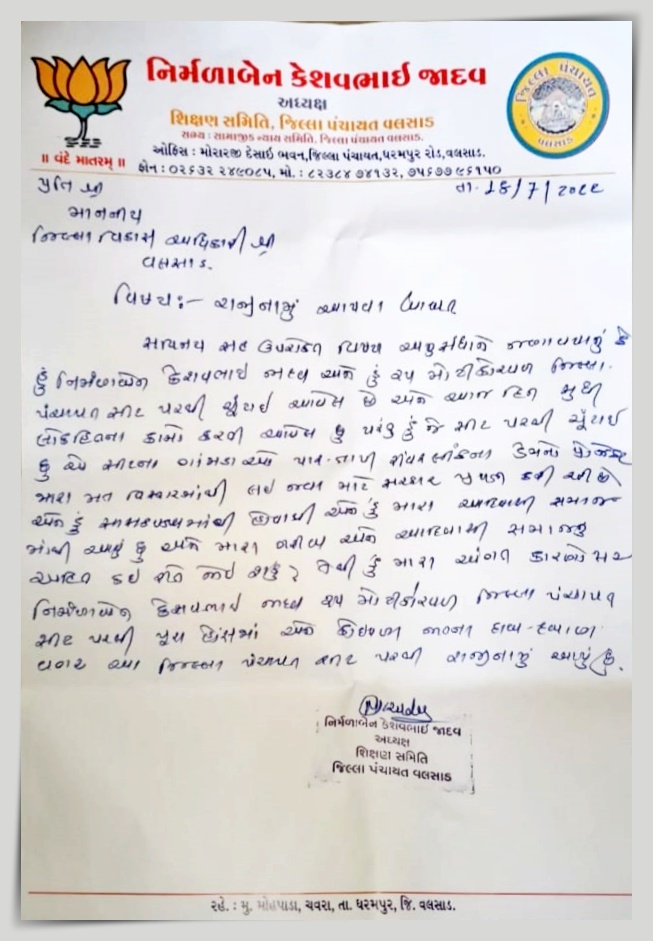 નિર્મળાબેન કેશવભાઈ જાદવ
અધ્યક્ષ
શિક્ષણ સમિતિ, જિલ્લા પંચાયત વલસાડ
સભ્ય : સામાજીક ન્યાય સમિતિ, જિલ્લા પંચાયત વલસાડ.
ઓફિસ : મોરારજી દેસાઈ ભવન,જિલ્લા પંચાયત,ધરમપુર રોડ,વલસાડ.
॥ વંદે માતરમ્ ॥
ફોન : ૦૨૬૩૨ ૨૪૯૦૮૫, મો. : ૮૨૩૮૪ ૭૪૧૩૨, ૭૫૬૭૭ ૯૬૧૫૦
જિલ્લા પંચાયત
વલસાડ
પ્રતિ શ્રી
તા. ૧૪/7/૨૦૨૨
માનનીય
જિલ્લા વિકાસ અધિકારી શ્રી
વલસાડ.
વિષય :- રાજીનામું આપવા બાબત
સવિનય સહ ઉપરોક્ત વિષય અનુસંધાને જણાવવાનું કે
હું નિર્મળાબેન કેશવભાઇ જાદવ અને હું ૨૫ મોટીકોરવળ જિલ્લા
પંચાયત સીટ પરથી ચૂંટાઇ આવેલ છે અને આજ દિન સુધી
લોકહિતના કામો કરતી આવેલ છુ પરંતુ હું જે સીટ પરથી ચૂંટાઇ
છુ એ સીટના ગામડાઓ પાર-તાપી રીવર લીંકના ડેમનો પ્રોજેક્ટ
મારા મત વિસ્તારમાંથી લઇ જવા માટે સરકાર કરી રહી છે
અને હું માંથી અને હું મારા આદિવાસી સમાજ
માંથી આવું છુ અને મારા અને આદિવાસી સમાજનું
અહિત કઇ રીતે જોઇ શકું? તેથી હું મારા અંગત કારણોસર
નિર્મળાબેન કેશવભાઇ જાદવ ૨૫ મોટીકોરવળ જિલ્લા પંચાયત
સીટ પરથી પૂરા હોંશમાં અને કોઇપણ જાતના દાબ-દબાણ
વગર આ જિલ્લા પંચાયત સીટ પરથી રાજીનામું આપું છું.
નિર્મળાબેન કેશવભાઈ જાદવ
અધ્યક્ષ
શિક્ષણ સમિતિ
જિલ્લા પંચાયત વલસાડ
રહે. : મુ. મોહપાડા, ચવરા, તા. ધરમપુર, જિ. વલસાડ.